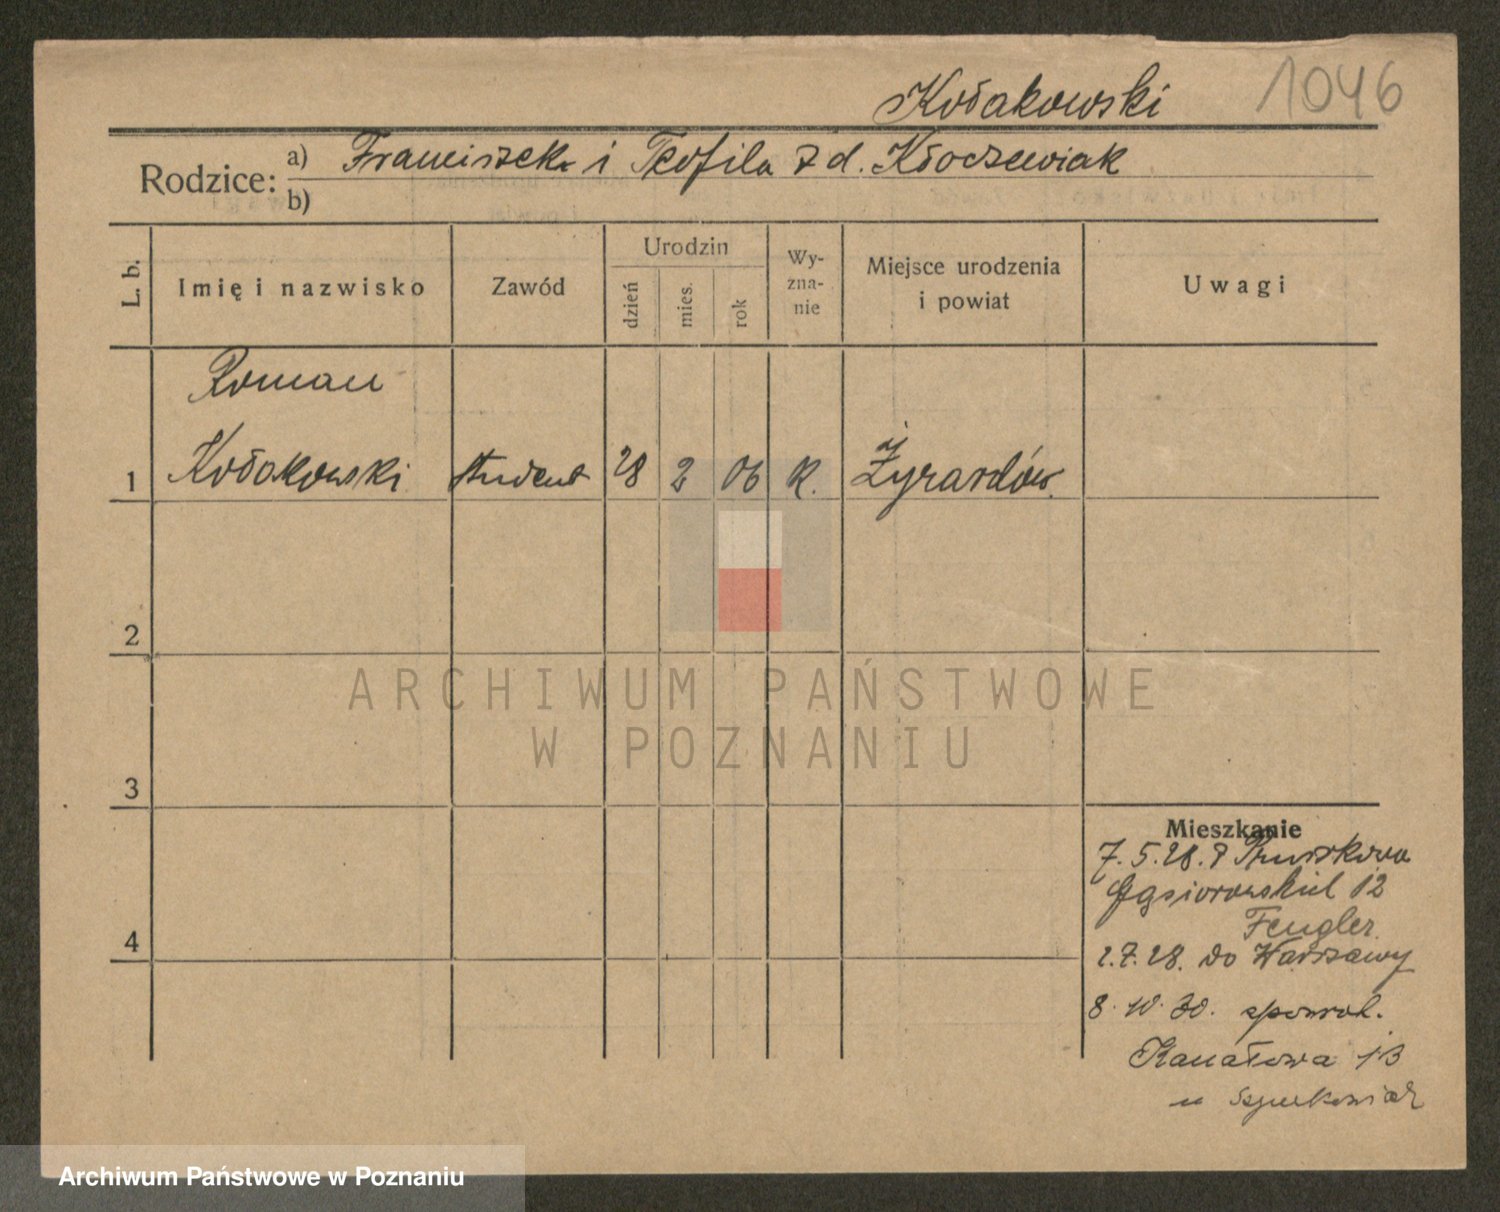 Kołakowski 1046
Rodzice: a) Franciszek i Teofila z d. Kłoczewiak
b)
L. b. Imię i nazwisko Zawód Urodzin dzień mies. rok Wy-zna-nie Miejsce urodzenia i powiat Uwagi
Roman
1 Kołakowski student 28 2 06 R. Żyrardów
2
ARCHIWUM PAŃSTWOWE
W POZNANIU
3
Mieszkanie
7.5.28. z Pruszkowa
Gąsiorowskich 12
4 Fengler
2.7.28. do Warszawy
8.10.30. z powrot.
Kanałowa 13
u
Archiwum Państwowe w Poznaniu